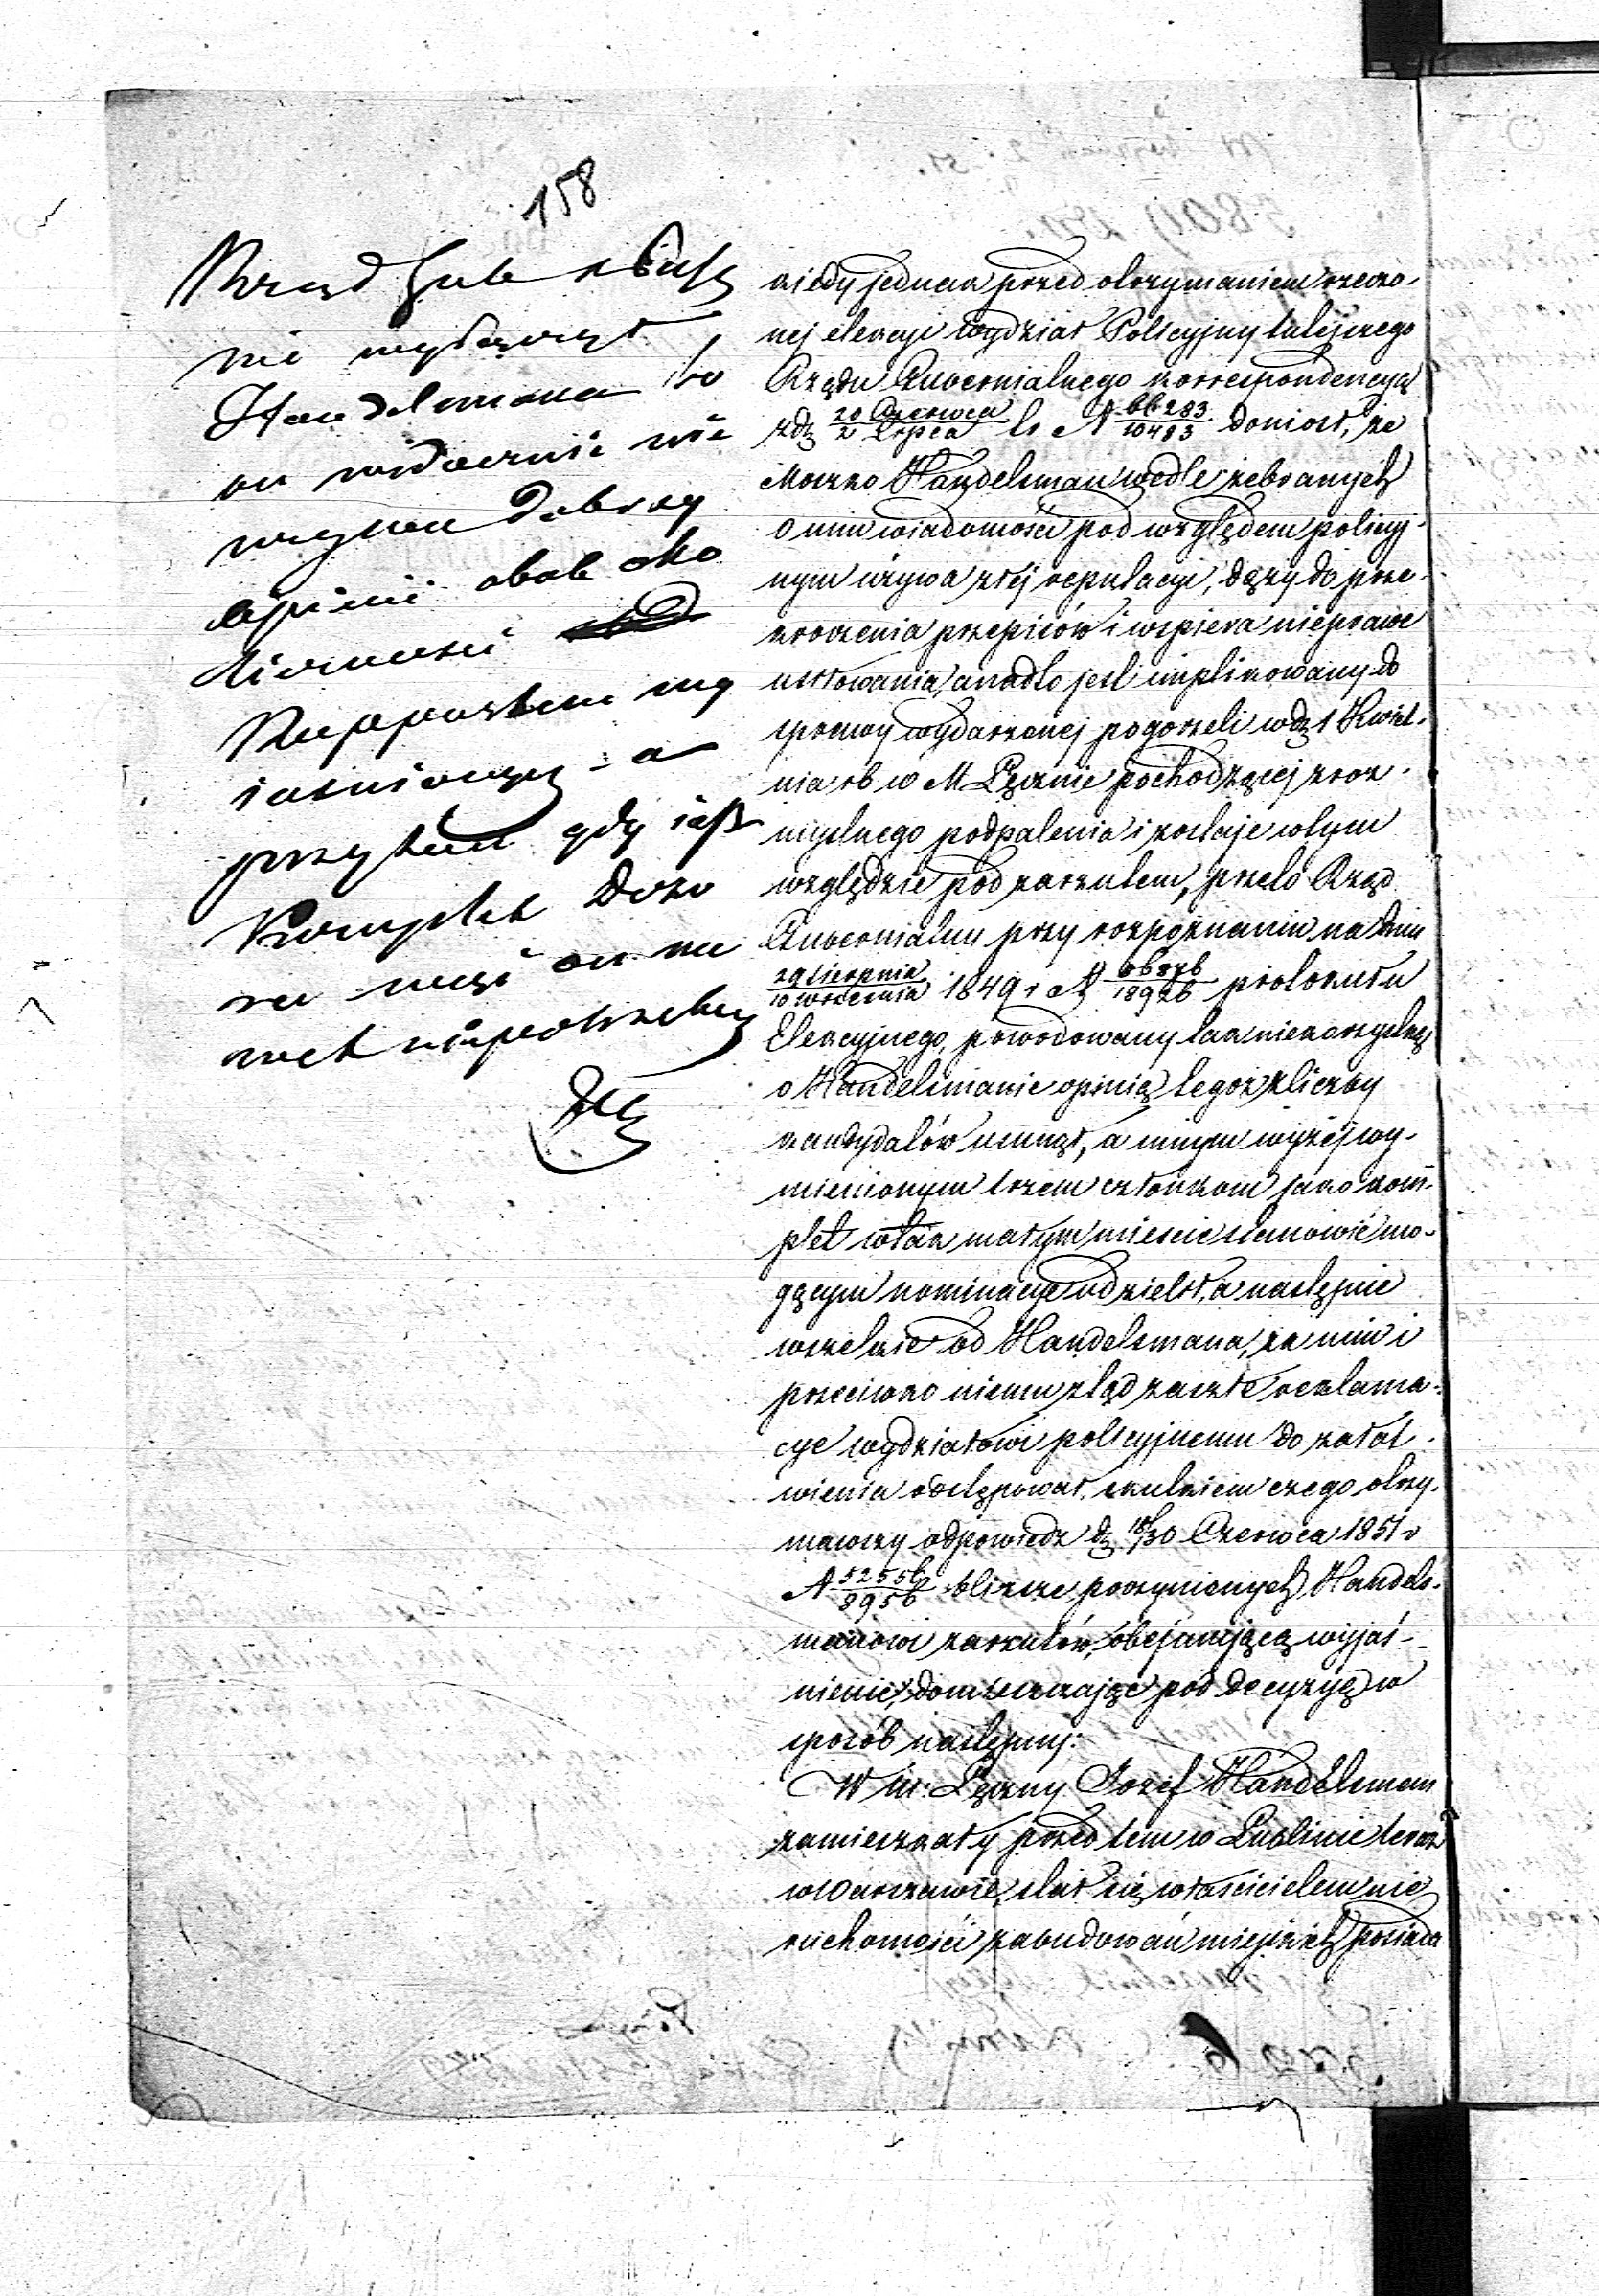 158
Rząd Gub słusznie
nie wyłączył
Handelsmana bo
on widocznie nie
używa dobrej
opinii obok oko
liczności
Rapportem wy
jaśnionych a
przytem gdy jest
Komplet Dozo
ru więc on na
wet niepotrzebny
kiedy jednak przed otrzymaniem rzeczo-
nej elekcyi wydział Policyjny tutejszego
Rządu Gubernialnego korrespondencyą
z dz 20 Czerwca / 2 Lipca tr N 66283/10483 doniósł, że
Moszko Handelsman wedle zebranych
o nim wiadomości pod względem policyj-
nym używa złej reputacyi, dąży do prze-
kroczenia przepisów i wspiera nieprawe
usiłowania, a nadto jest implikowany do
sprawy wydarzonej pogorzeli w dz 1 Kwiet-
nia rb w M Łęcznie pochodzącej z roz-
myślnego podpalenia i zostaje w tym
względzie pod zarzutem, przeto Rząd
Gubernialny przy rozpoznaniu na dniu
29 Sierpnia / 10 Września 1849 r N 86876/18926 protokułu
Elekcyjnego, powodowany tak niekorzystną
o Handelsmanie opinią tegoż z liczby
kandydatów usunął, a innym wyżej wy-
mienionym trzem członkom jako kom-
plet w tak małym mieście stanowić mo-
gącym nominacye udzielił, a następnie
wszelkie od Handelsmana, za nim i
przeciwko niemu ztąd zaszłe reklama-
cye wydziałowi policyjnemu do załat-
wienia odstępował, skutkiem czego otrzy-
mawszy odpowiedź dz 18/30 Czerwca 1851 r
N 52556/8956 bliższe poczynionych Handels-
manowi zarzutów, obejmującą wyjaś-
nienie, domieszczając pod decyzyą w
sposób następny:
W m. Łęczny Jozef Handelsman
zamieszkały przedtem w Lublinie teraz
w Warszawie, stał się właścicielem nie
ruchomości zabudowań miejskich posiada